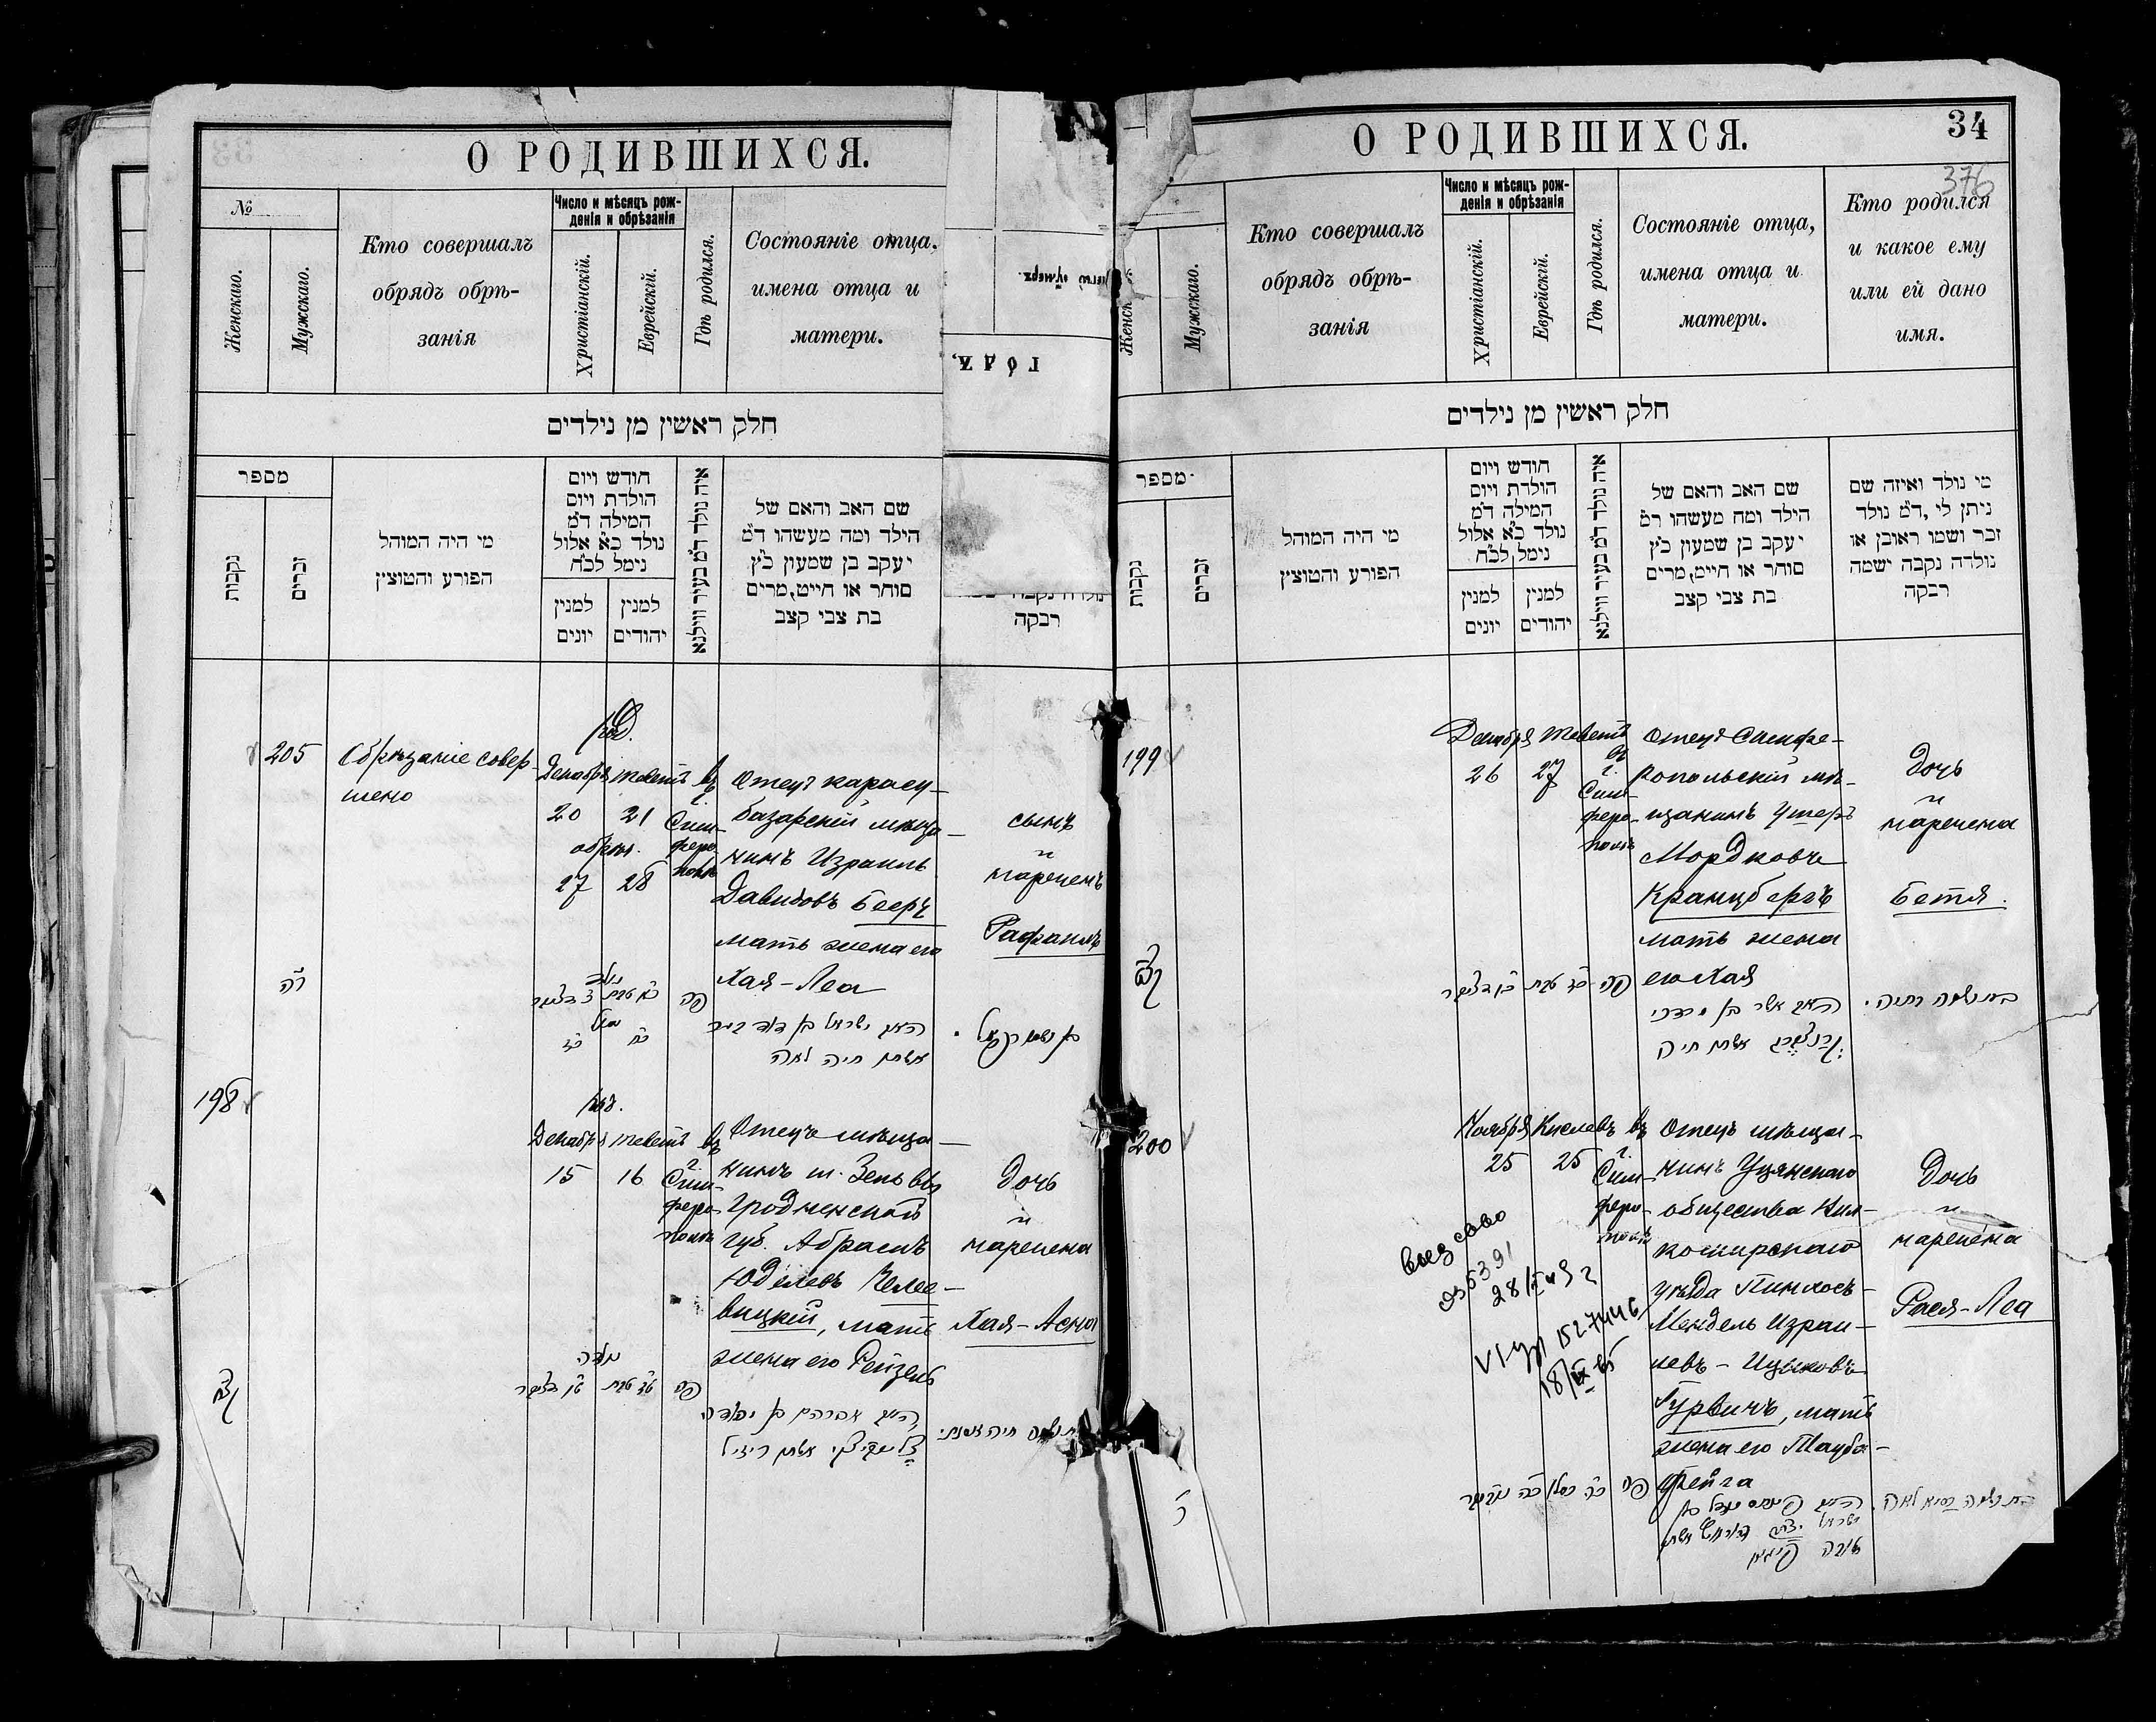 О РОДИВШИХСЯ.
№
Женскаго.
Мужскаго.
Кто совершалъ
обрядъ обрѣ-
занія
Число и мѣсяцъ рож-
денія и обрѣзанія
Христіанскій.
Еврейскій.
Гдѣ родился.
Состояніе отца,
имена отца и
матери.
годъ,
חלק ראשין מן נילדים
מספר
נקבות
זכרים
מי היה המוהל
הפורע והמוצץ
חודש ויום
הולדת ויום
המילה ד"מ
נולד כ"א אלול
נימל לכ"ח
למנין
יונים
למנין
יהודים
איה נולד ד"מ בעיר ווילנא
שם האב והאם של
הילד ומה מעשהו ד"מ
יעקב בן שמעון כ"ץ
סוחר או חייט, מרים
בת צבי קצב
רבקה
205
Обрѣзаніе совер-
шено
род.
Декабря Теветъ
20 21
обрѣз.
27 28
въ
г.
Сим-
феро-
полѣ
Отецъ карасу-
базарскій мѣща-
нинъ Израиль
Давидовъ Бееръ
мать жена его
Хая-Леа
сынъ
и
нареченъ
Рафаилъ
ר"ה
נולד
כ"א טבת
פה
ישראל בן דוד
אשתו חיה לאה
198
род.
Декабря Теветъ
15 16
въ
г.
Сим-
феро-
полѣ
Отецъ мѣща-
нинъ м. Зельвы
Гродненской
губ. Абрамъ
Юделевъ Челее-
вицкій, мать
жена его Рейзель
Дочь
и
наречена
Хая-Асна
נולדה
פה
אברהם בן יהודה
אשתו רייזיל
О РОДИВШИХСЯ.
34
376
Женск
Мужскаго.
Кто совершалъ
обрядъ обрѣ-
занія
Число и мѣсяцъ рож-
денія и обрѣзанія
Христіанскій.
Еврейскій.
Гдѣ родился.
Состояніе отца,
имена отца и
матери.
Кто родился
и какое ему
или ей дано
имя.
חלק ראשין מן נילדים
מספר
נקבות
זכרים
מי היה המוהל
הפורע והמוצץ
חודש ויום
הולדת ויום
המילה ד"מ
נולד כ"א אלול
נימל לכ"ח
למנין
יונים
למנין
יהודים
איה נולד ד"מ בעיר ווילנא
שם האב והאם של
הילד ומה מעשהו ד"מ
יעקב בן שמעון כ"ץ
סוחר או חייט, מרים
בת צבי קצב
מי נולד ואיזה שם
ניתן לי, ד"מ נולד
זכר ושמו ראובן או
נולדה נקבה ישמה
רבקה
199
Декабря Теветъ
26 27
въ
г.
Сим-
феро-
полѣ
Отецъ Симфе-
ропольскій мѣ-
щанинъ Ушеръ
Мордковъ
Кранцбергъ
мать жена
его Хая
Дочь
и
наречена
Бетя.
פה
אשר בן מרדכי
אשתו חיה
200
Ноября Кислевъ
25 25
въ
г.
Сим-
феро-
полѣ
Отецъ мѣща-
нинъ Уцянскаго
общества Вил-
комирскаго
уѣзда Пинхосъ-
Мендель Израи-
левъ-Ицыковъ
Гурвичъ, мать
жена его Тауба-
Фейга
Дочь
и
наречена
Рася-Леа
כ"ה כסלו
פה
פנחס מענדל בן
ישראל
28/
18/IX
ר'